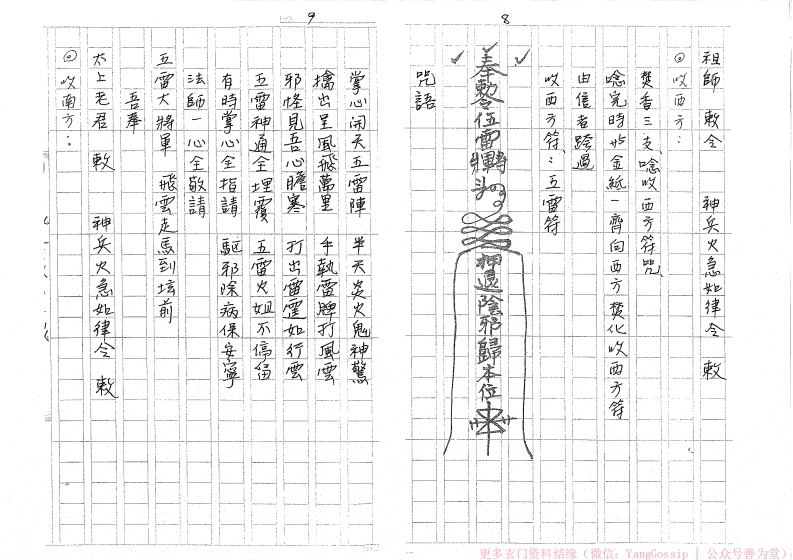 8
祖師 敕令 神兵火急如律令 敕
◎收西方：
焚香三支、唸收西方符咒、
唸完時拈金紙一齊向西方焚化收西方符
由信者跨過
收西方符：五雷符
奉勅令伍雷
押退陰邪歸本位
咒語
9
掌心開天五雷陣 半天炎火鬼神驚
擒出呈風飛萬里 手執雷牌打風雲
邪怪見吾心膽寒 打出雷霆如行雲
五雷神通全埋覆 五雷火姐不停留
有時掌心全指請 驅邪除病保安寧
法師一心全敬請
五雷大將軍 飛雲走馬到壇前
吾奉
太上老君 敕 神兵火急如律令 敕
◎收南方：
更多玄门资料结缘（微信：YangGossip | 公众号善为堂）